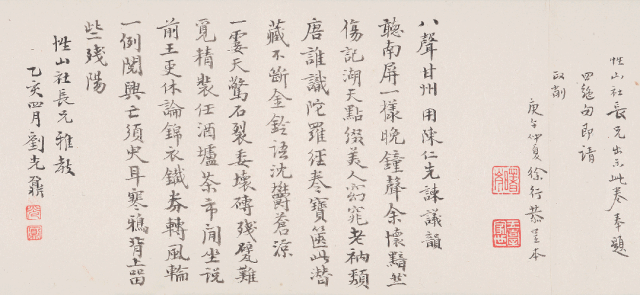 惺山社長兄出示此卷奉題
四絕句即請
政削
庚午仲夏徐行恭呈本
八聲甘州 用陳仁先諫議韻
聽南屏一樣晚鐘聲余懷黯然
傷記湖天點綴美人窈窕老衲頹
唐誰識陀羅經卷寶篋此潛
藏不斷金鈴語沈鬱蒼涼
一霎天驚石裂委壞磚殘甓難
覓精裝任酒壚茶市閒坐說
前王更休論錦衣鐵券轉風輪
一例閱興亡須臾耳寒鴉背上留
些殘陽
惺山社長兄雅教
乙亥四月劉光